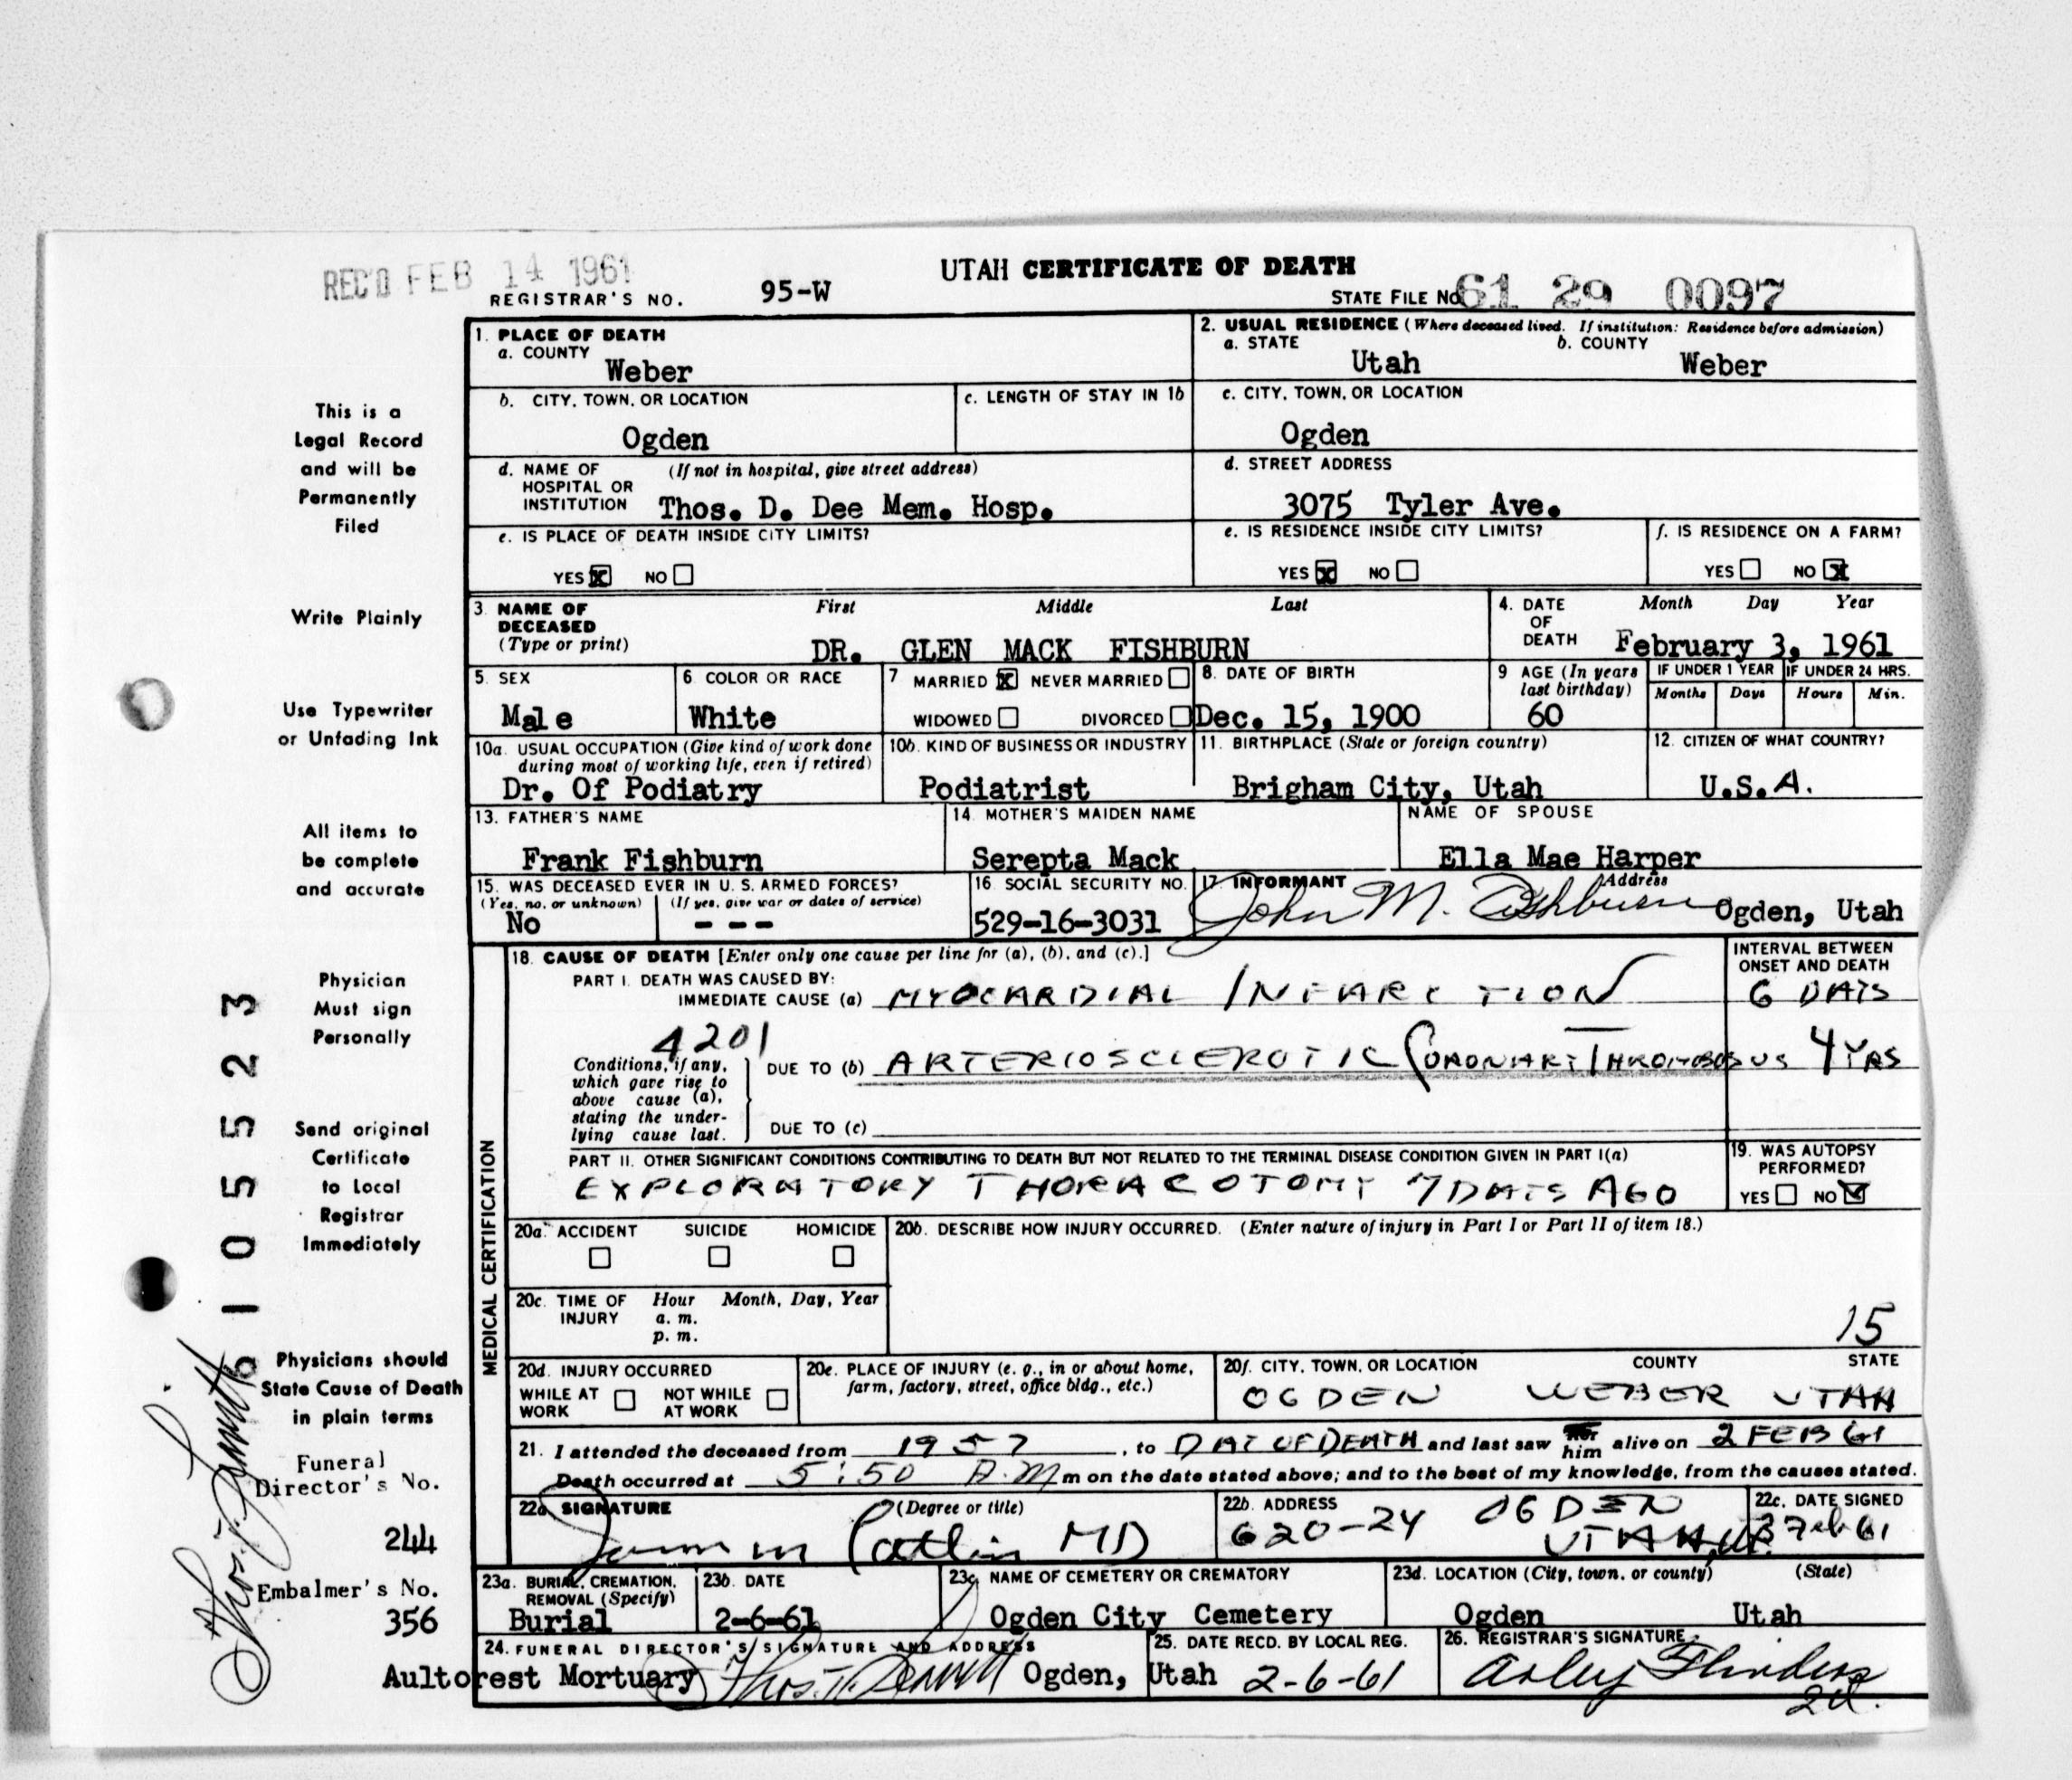 REC'D FEB 14 1961
UTAH CERTIFICATE OF DEATH
REGISTRAR'S NO. 95-W
STATE FILE NO. 61 29 0097
1. PLACE OF DEATH
a. COUNTY
Weber
2. USUAL RESIDENCE (Where deceased lived. If institution: Residence before admission)
a. STATE b. COUNTY
Utah Weber
b. CITY, TOWN, OR LOCATION
Ogden
c. LENGTH OF STAY IN 1b
c. CITY, TOWN, OR LOCATION
Ogden
d. NAME OF (If not in hospital, give street address)
HOSPITAL OR
INSTITUTION Thos. D. Dee Mem. Hosp.
d. STREET ADDRESS
3075 Tyler Ave.
e. IS PLACE OF DEATH INSIDE CITY LIMITS?
YES X NO
e. IS RESIDENCE INSIDE CITY LIMITS?
YES X NO
f. IS RESIDENCE ON A FARM?
YES NO X
3. NAME OF DECEASED (Type or print)
First Middle Last
DR. GLEN MACK FISHBURN
4. DATE OF DEATH
Month Day Year
February 3, 1961
5. SEX
Male
6. COLOR OR RACE
White
7 MARRIED X NEVER MARRIED
WIDOWED DIVORCED
8. DATE OF BIRTH
Dec. 15, 1900
9 AGE (In years last birthday)
60
IF UNDER 1 YEAR
Months Days
IF UNDER 24 HRS.
Hours Min.
10a. USUAL OCCUPATION (Give kind of work done
during most of working life, even if retired)
Dr. Of Podiatry
10b. KIND OF BUSINESS OR INDUSTRY
Podiatrist
11. BIRTHPLACE (State or foreign country)
Brigham City, Utah
12. CITIZEN OF WHAT COUNTRY?
U.S.A.
13. FATHER'S NAME
Frank Fishburn
14. MOTHER'S MAIDEN NAME
Serepta Mack
NAME OF SPOUSE
Ella Mae Harper
15. WAS DECEASED EVER IN U. S. ARMED FORCES?
(Yes, no, or unknown) (If yes, give war or dates of service)
No - - -
16. SOCIAL SECURITY NO.
529-16-3031
17. INFORMANT Address
John M. Fishburn Ogden, Utah
18. CAUSE OF DEATH [Enter only one cause per line for (a), (b), and (c).]
PART I. DEATH WAS CAUSED BY:
IMMEDIATE CAUSE (a) MYOCARDIAL INFARCTION
INTERVAL BETWEEN
ONSET AND DEATH
6 DAYS
4201
Conditions, if any,
which gave rise to
above cause (a),
stating the under-
lying cause last.
DUE TO (b) ARTERIOSCLEROTIC CORONARY THROMBOSUS 4 YRS
DUE TO (c)
PART II. OTHER SIGNIFICANT CONDITIONS CONTRIBUTING TO DEATH BUT NOT RELATED TO THE TERMINAL DISEASE CONDITION GIVEN IN PART I(a)
EXPLORATORY THORACOTOMY 7 DAYS AGO
19. WAS AUTOPSY
PERFORMED?
YES NO
MEDICAL CERTIFICATION
20a. ACCIDENT SUICIDE HOMICIDE
20b. DESCRIBE HOW INJURY OCCURRED. (Enter nature of injury in Part I or Part II of item 18.)
20c. TIME OF INJURY
Hour Month, Day, Year
a. m.
p. m.
15
20d. INJURY OCCURRED
WHILE AT WORK NOT WHILE AT WORK
20e. PLACE OF INJURY (e. g., in or about home,
farm, factory, street, office bldg., etc.)
20f. CITY, TOWN, OR LOCATION COUNTY STATE
OGDEN WEBER UTAH
21. I attended the deceased from 1957, to DAY OF DEATH and last saw him alive on 2 FEB 61
Death occurred at 5:50 A.M m on the date stated above; and to the best of my knowledge, from the causes stated.
22a. SIGNATURE (Degree or title)
Catlin MD
22b. ADDRESS
620-24 OGDEN
UTAH
22c. DATE SIGNED
3 Feb 61
23a. BURIAL, CREMATION,
REMOVAL (Specify)
Burial
23b. DATE
2-6-61
23c. NAME OF CEMETERY OR CREMATORY
Ogden City Cemetery
23d. LOCATION (City, town, or county) (State)
Ogden Utah
24. FUNERAL DIRECTOR'S SIGNATURE AND ADDRESS
Aultorest Mortuary Ogden, Utah
25. DATE RECD. BY LOCAL REG.
2-6-61
26. REGISTRAR'S SIGNATURE
Arley Flinders
This is a
Legal Record
and will be
Permanently
Filed
Write Plainly
Use Typewriter
or Unfading Ink
All items to
be complete
and accurate
Physician
Must sign
Personally
Send original
Certificate
to Local
Registrar
Immediately
Physicians should
State Cause of Death
in plain terms
Funeral
Director's No.
244
Embalmer's No.
356
6 1 0 5 5 2 3